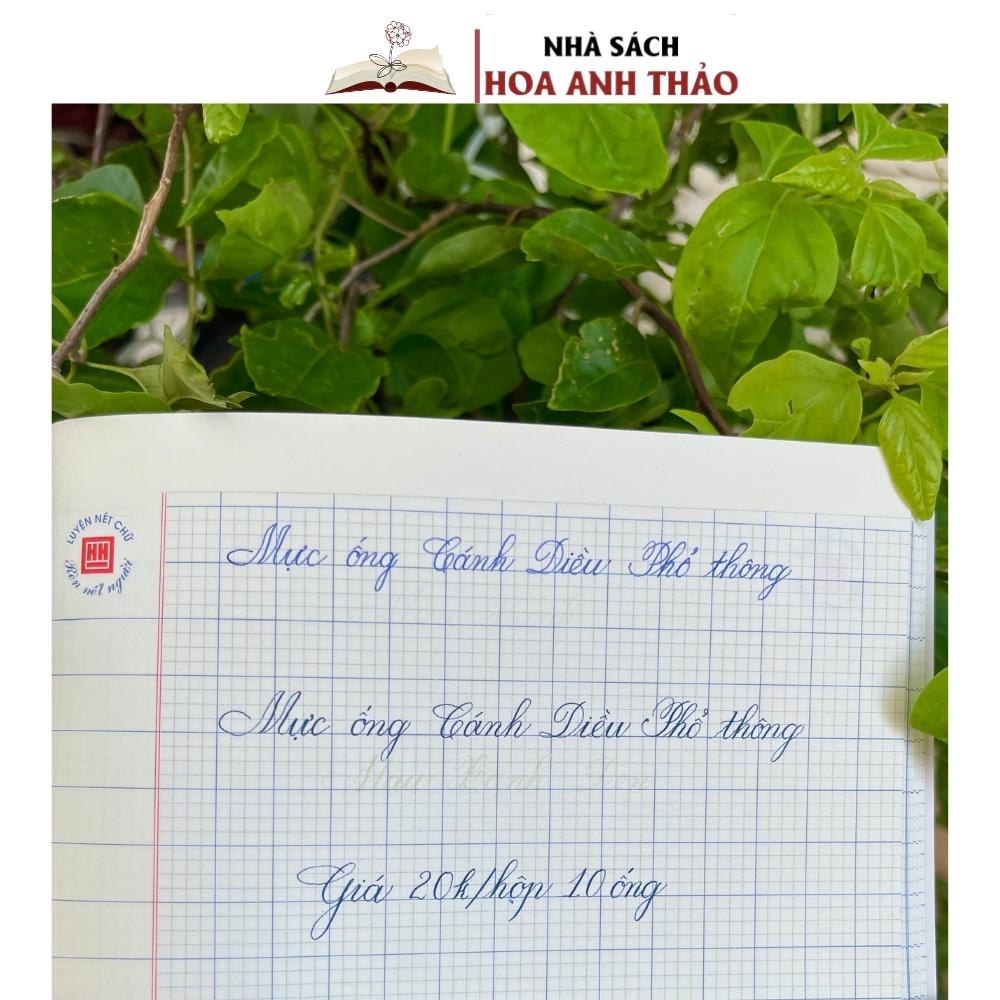 NHÀ SÁCH
HOA ANH THẢO
LUYỆN NÉT CHỮ
HH
Rèn nết người
Mực ống Cánh Diều Phổ thông
Mực ống Cánh Diều Phổ thông
Màu Xanh Đen
Giá 20k/hộp 10 ống